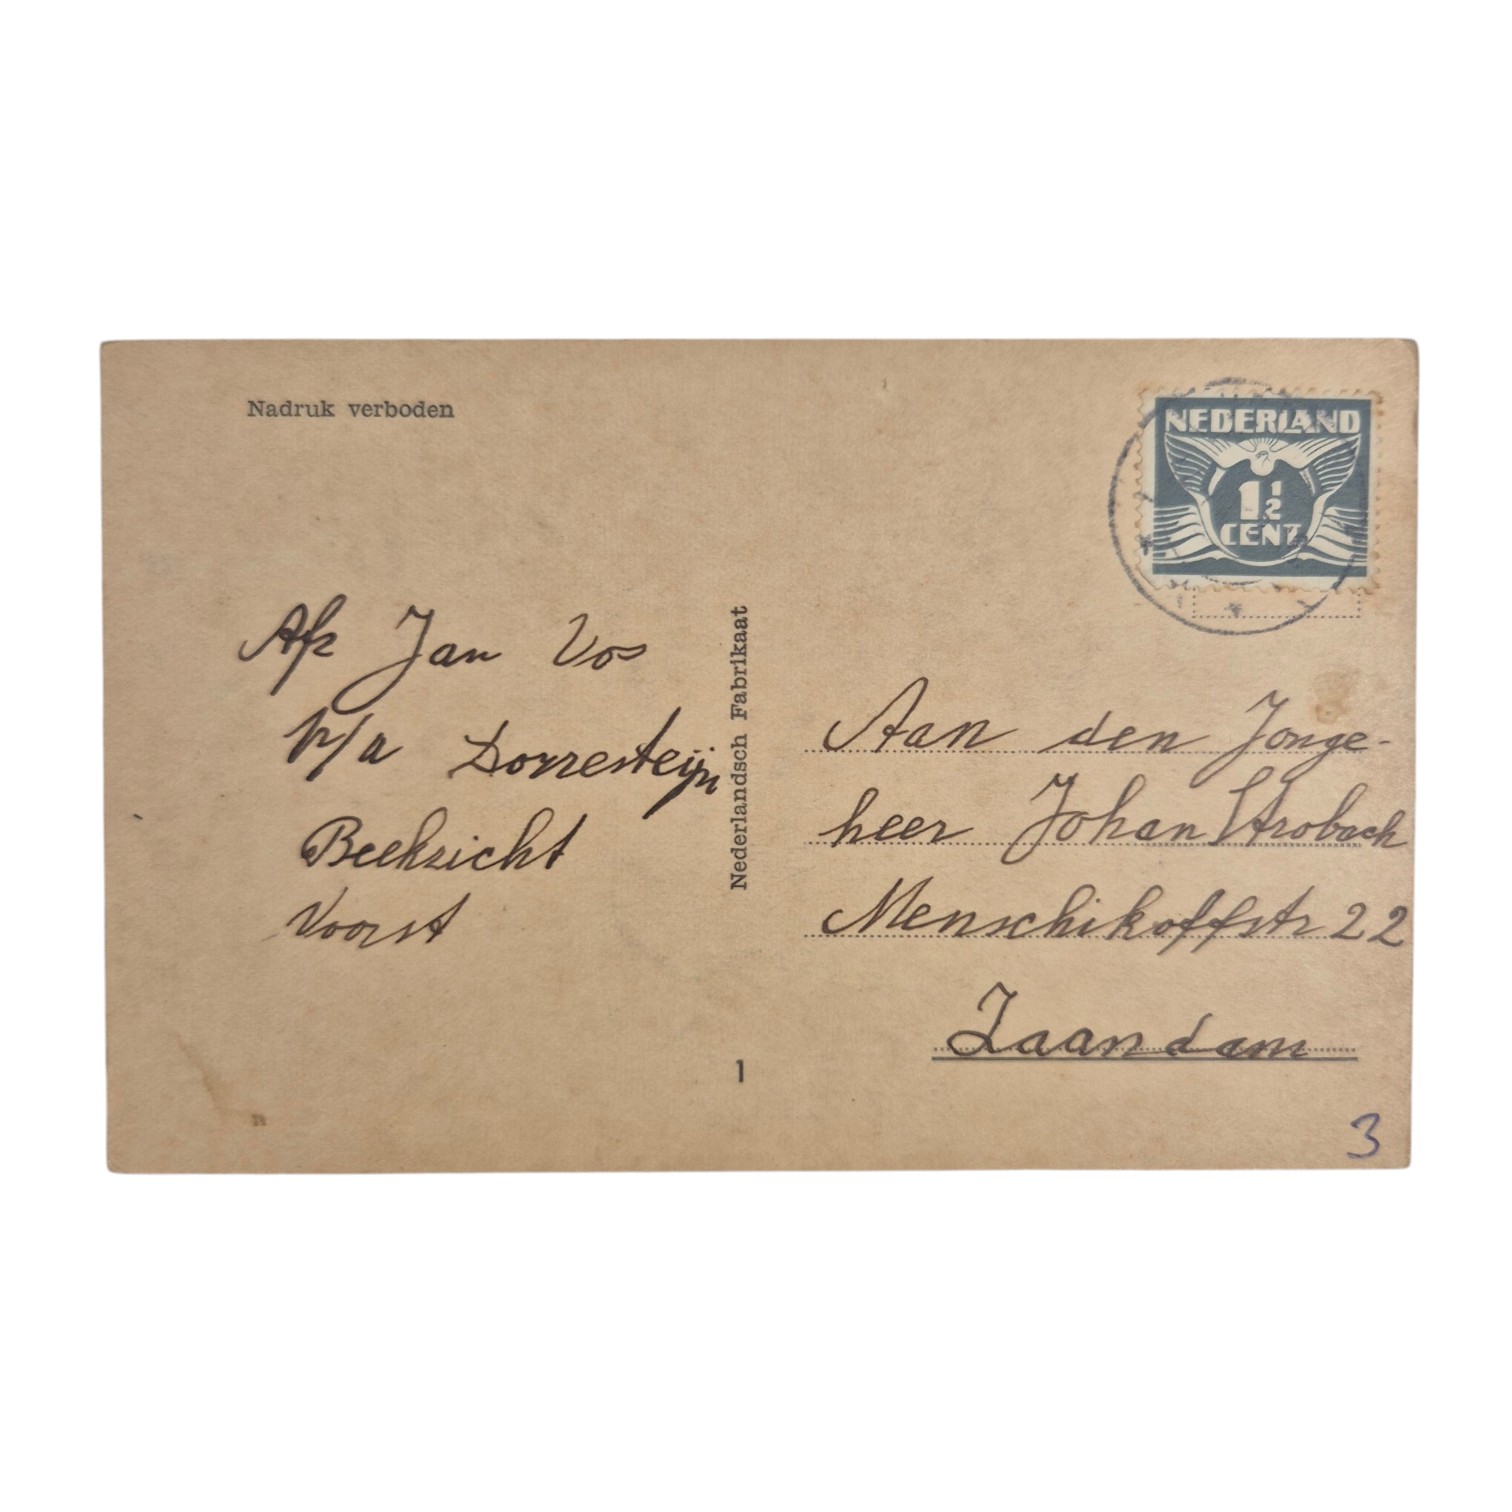 Nadruk verboden
NEDERLAND
1½
CENT
Afz Jan Vos
p/a Dorresteijn
Beekzicht
Voorst
Nederlandsch Fabrikaat
1
Aan den Jonge-
heer Johan Strobach
Menschikoffstr 22
Zaandam
3